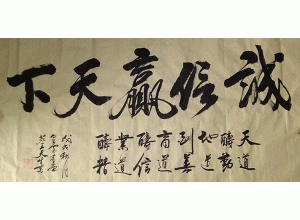 誠信贏天下
天道
酬勤
地道
酬善
商道
酬信
業道
酬精
戊戌秋月